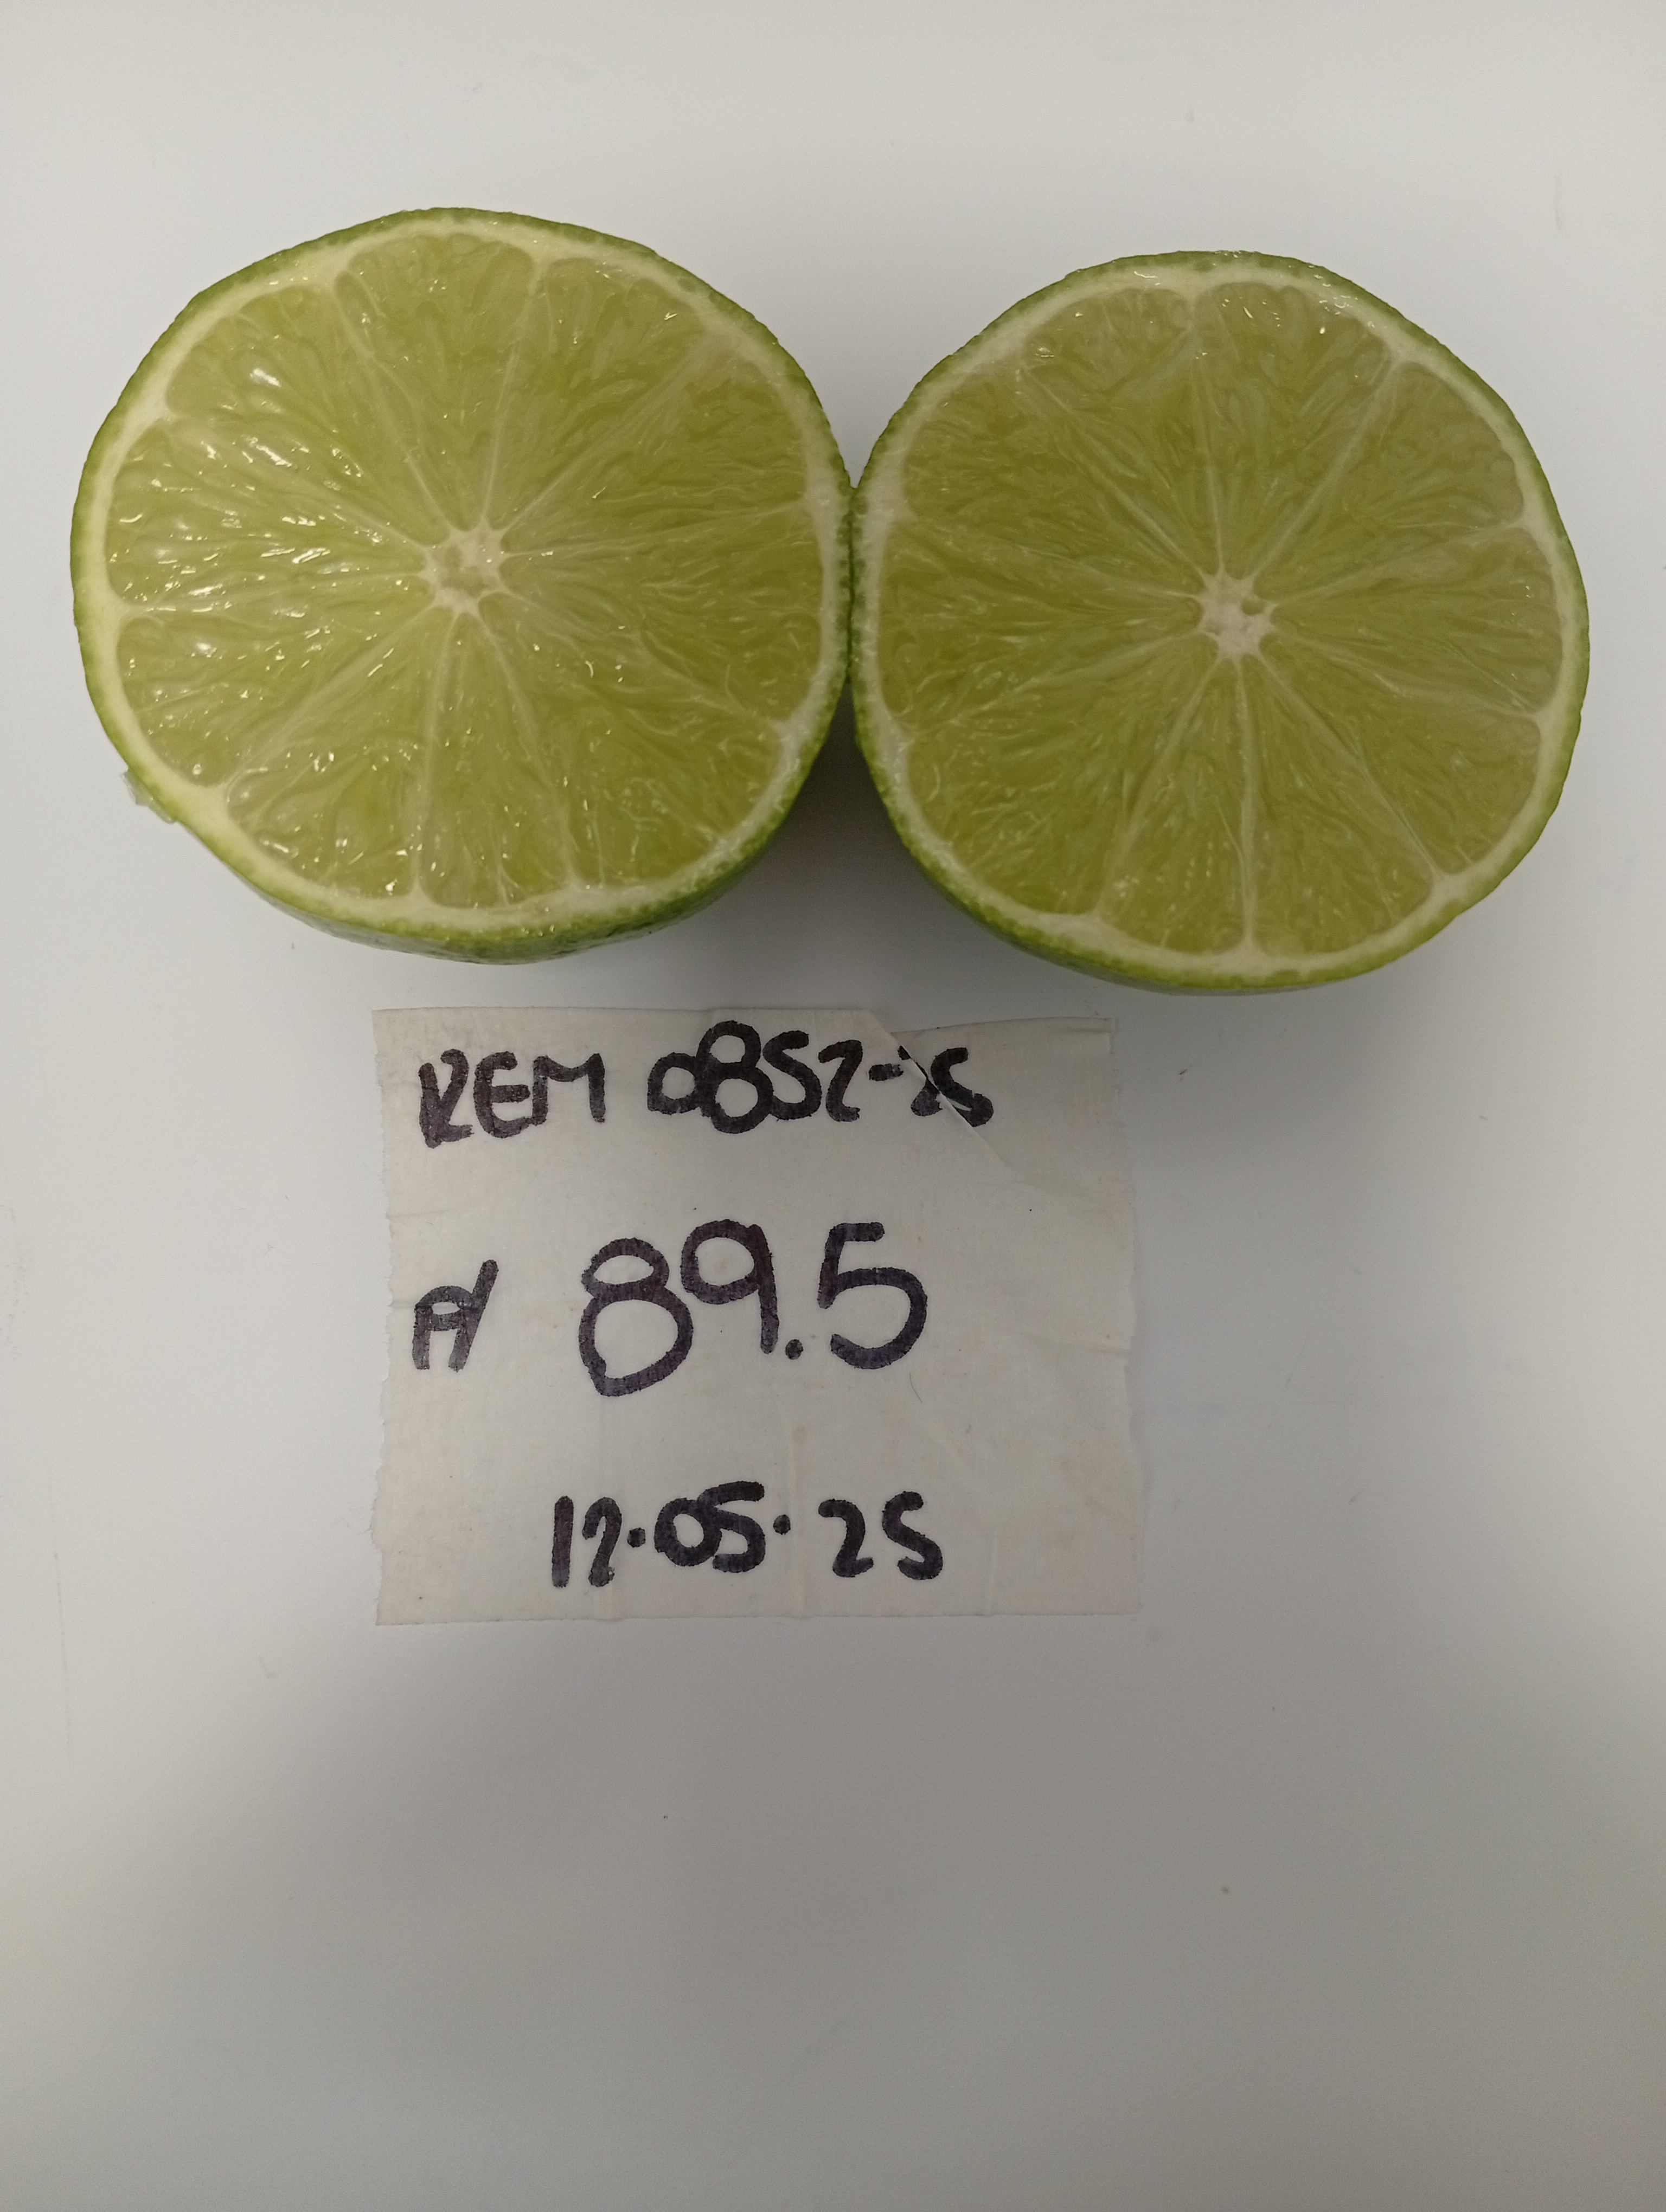 REM 0852-25
A 89.5
12.05.25